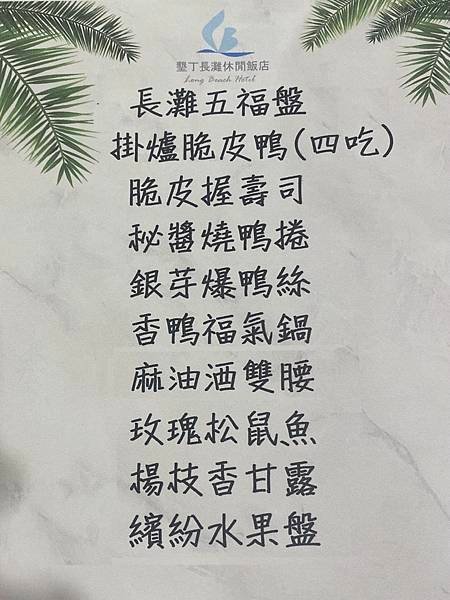 墾丁長灘休閒飯店
Long Beach Hotel
長灘五福盤
掛爐脆皮鴨(四吃)
脆皮握壽司
秘醬燒鴨捲
銀芽爆鴨絲
香鴨福氣鍋
麻油酒雙腰
玫瑰松鼠魚
楊枝香甘露
繽紛水果盤